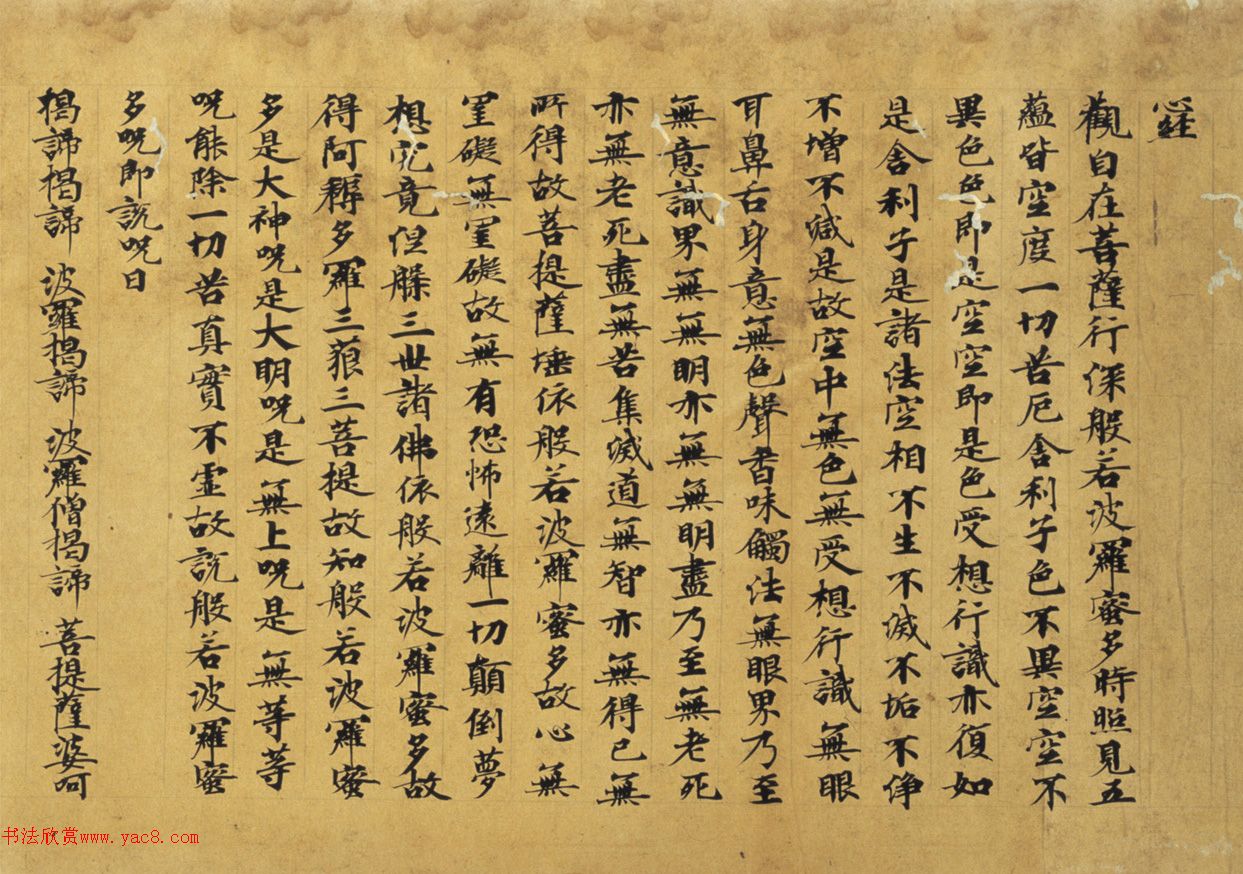 心經
觀自在菩薩行深般若波羅蜜多時照見五
蘊皆空度一切苦厄舍利子色不異空空不
異色色即是空空即是色受想行識亦復如
是舍利子是諸法空相不生不滅不垢不淨
不增不減是故空中無色無受想行識無眼
耳鼻舌身意無色聲香味觸法無眼界乃至
無意識界無無明亦無無明盡乃至無老死
亦無老死盡無苦集滅道無智亦無得已無
所得故菩提薩埵依般若波羅蜜多故心無
罣礙無罣礙故無有恐怖遠離一切顛倒夢
想究竟涅槃三世諸佛依般若波羅蜜多故
得阿耨多羅三藐三菩提故知般若波羅蜜
多是大神呪是大明呪是無上呪是無等等
呪能除一切苦真實不虛故說般若波羅蜜
多呪即說呪曰
揭諦揭諦 波羅揭諦 波羅僧揭諦 菩提薩婆呵
书法欣赏www.yac8.com